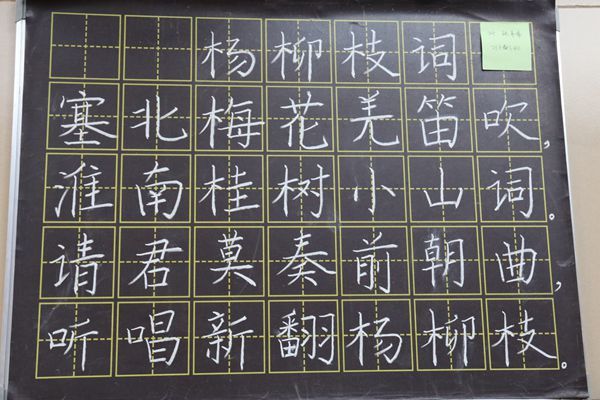 杨柳枝词
塞北梅花羌笛吹,
淮南桂树小山词。
请君莫奏前朝曲,
听唱新翻杨柳枝。